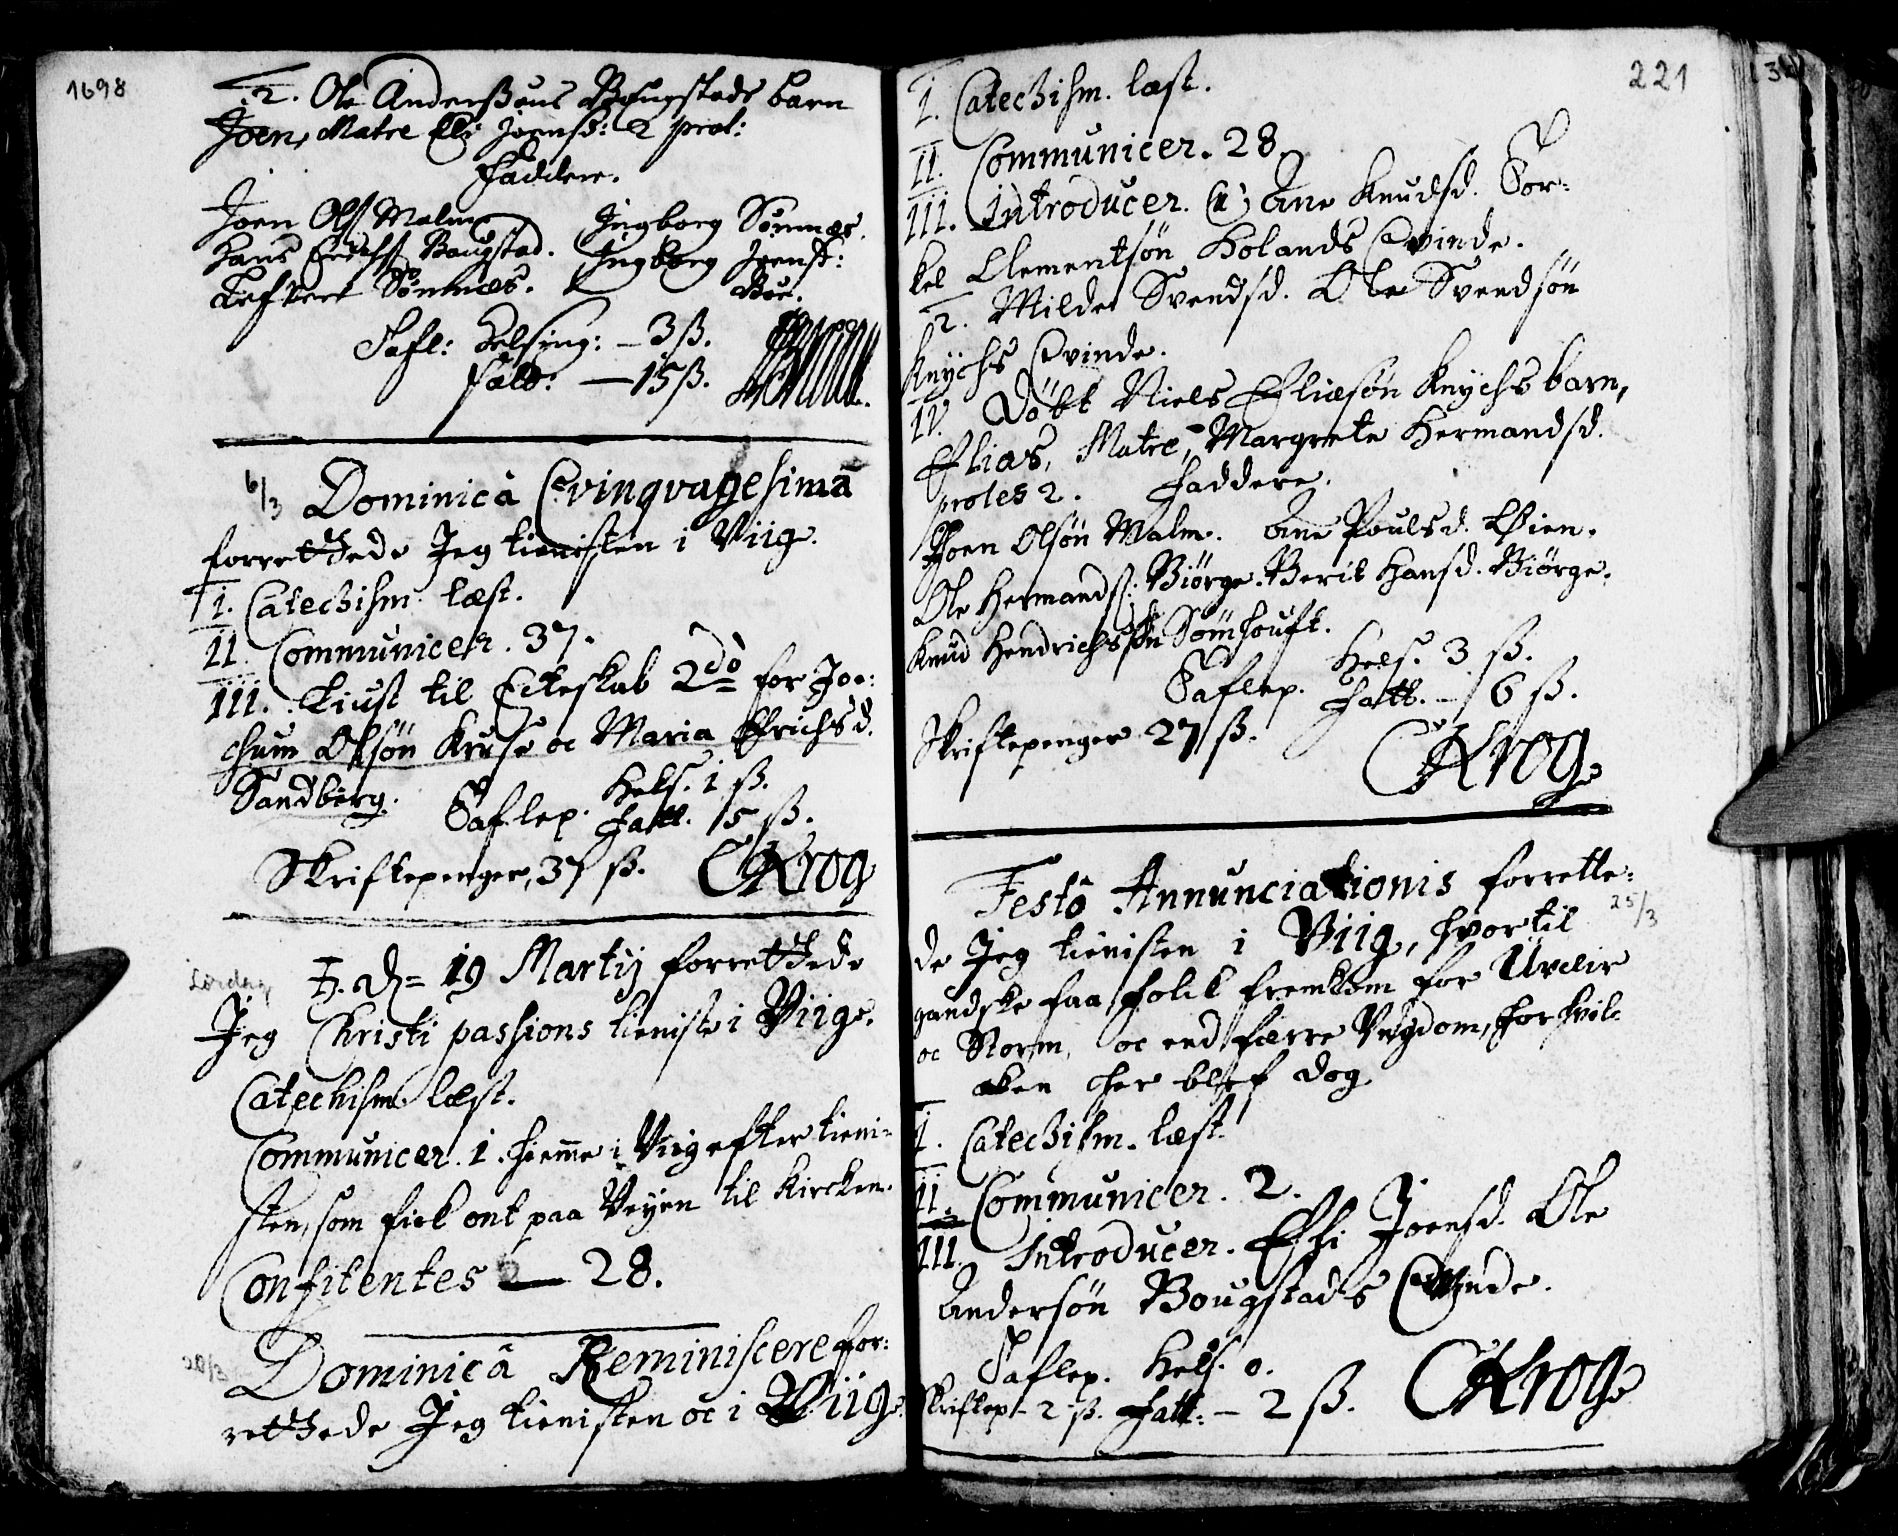 1698
2. Ole Anderßøns Bougstads barn
Joen, Matre Eli Joensß: 2 prol:
Faddere.
Joen Olß Malm Ingborg Sönnæs.
Hans Bougstad. Ingborg Joensß:
Sönnæs. Böe.
Tafl: Helsing: – 3 ß.
fatt: – 15 ß.
6/3 Dominicâ Qvinqvagesimâ
forrettede Jeg tienisten i Viig.
I. Catechism. læst.
II. Communicer. 37.
III. Liust til Ecteskab 2do for Joc:
chum Olsøn Kruse oc Maria Erichsd.
Sandberg. Hels. 1 ß.
Taflep. Fatt. 5 ß.
Skriftepenger, 37 ß. CKrog
Lørdag d. 19 Martij forrettede
Jeg Christi passions tieniste i Viig.
Catechism. læst.
Communicer. 1. hiemme i Viig efter tieni-
sten, som fick ont paa Veyen til Kircken.
Confitentes — 28.
20/3 Dominicâ Reminiscere for:
rettede Jeg tienisten oc i Viig.
221
I. Catechism. læst.
II. Communicer. 28
III. Introducer. (1) Ane Knudsd. Tor:
kel Clementsøn Holands Qvinde.
2. Mildri Svendsd. Ole Svendsøn
Knychs Qvinde.
IV. Döbt Niels Eliæsøn Knychs barn,
Elias, Matre, Margrete Hermandsd.
proles 2. Faddere.
Joen Olsøn Malm. Ane Poulsd. Øien.
Ole Hermandsß: Biørge. Berit Hansd. Biørge.
Knud Hendrichssøn Sømhouft.
Hels. 3 ß.
Taflep. Fatt. – 6 ß.
Skriftepenger 27 ß.
CKrog
Festô Annunciationis forrette:
25/3
de Jeg tienisten i Viig, hvortil
gandske faa folck fremkom for Uveir
oc Storm, oc end færre Vngdom, for hvil:
cken her blef dog
I. Catechism. læst.
II. Communicer. 2.
III. Introducer. Elsi Joensd. Ole
Andersøn Bougstads Qvinde.
Taflep. Hels. 0.
Skriftep – 2 ß. Fatt: – 2 ß. CKrog